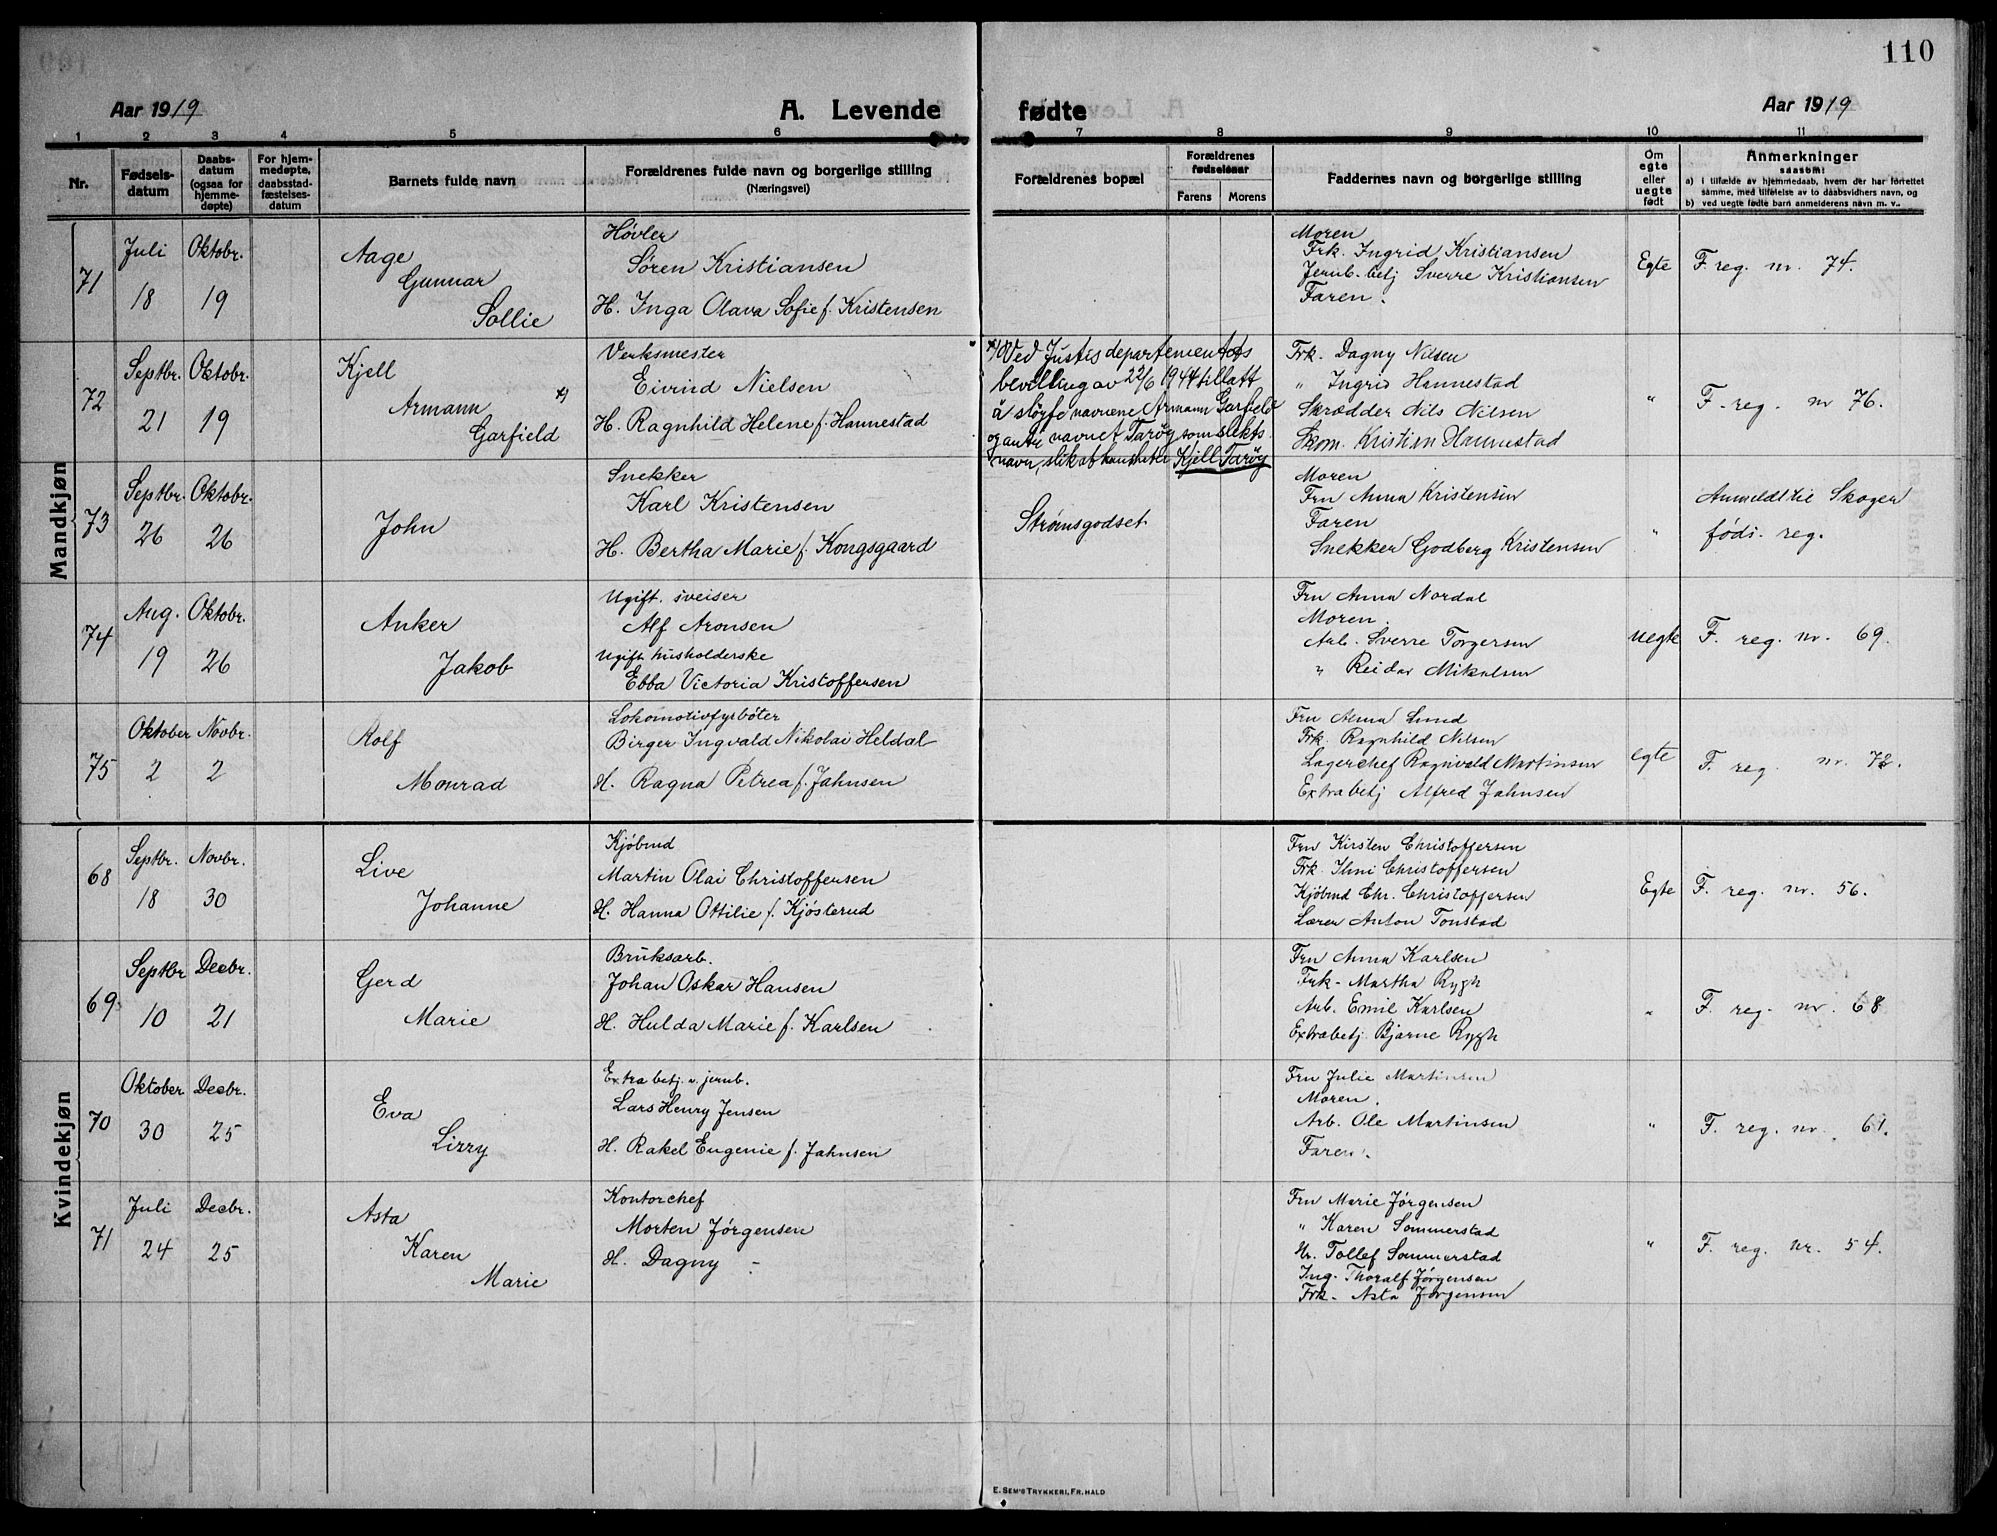 110
Aar 1919
A. Levende
fødte
Aar 1919
1 2 3 4 5 6 7 8 9 10 11
Nr.
Fødsels-
datum
Daabs-
datum
(ogsaa for
hjemme-
døpte)
For hjem-
medøpte,
daabsstad-
fæstelses-
datum
Barnets fulde navn
Forældrenes fulde navn og borgerlige stilling
(Næringsvei)
Forældrenes bopæl
Forældrenes
fødselsaar
Farens
Morens
Faddernes navn og borgerlige stilling
Om
egte
eller
uegte
født
Anmerkninger
saasom:
a) i tilfælde av hjemmedaab, hvem der har forrettet
samme, med tilføielse av to daabsvidners navn, og
b) ved uegte fødte barn anmelderens navn m. v..
Mandkjøn
71
Juli
18
Oktobr.
19
Aage
Gunnar
Sollie
Høvler
Søren Kristiansen
H. Inga Olava Sofie f. Kristensen
Moren
Frk. Ingrid Kristiansen
Jernb. betj Sverre Kristiansen
Faren.
Egte
F. reg. nr. 74.
72
Septbr.
21
Oktobr.
19
Kjell
Armann *)
Garfield
Verksmester
Eivind Nielsen
H. Ragnhild Helene f. Hannestad
*) Ved Justisdepartementets
bevilling av 22/6 1944 tillatt
å sløyfe navnene Armann Garfield
og anta navnet Tarøy som slekts
navn, slik at han heter Kjell Tarøy
Frk. Dagny Nilsen
" Ingrid Hannestad
Skrædder Nils Nilsen
Skom. Kristian Hannestad
"
F. reg. nr 76.
73
Septbr.
26
Oktobr.
26
John
Snekker
Karl Kristensen
H. Bertha Marie f. Kongsgaard
Strømsgodset
Moren
Fru Anna Kristensen
Faren
Snekker Godberg Kristensen
"
Anmeldt til Skoger
føds. reg.
74
Aug.
19
Oktobr.
26
Anker
Jakob
Ugift. sveiser
Alf Aronsen
Ugift husholderske
Ebba Victoria Kristoffersen
Fru Anna Nordal
Moren.
Arb. Sverre Torgersen
" Reidar Mikalsen
uegte
F. reg. nr. 69.
75
Oktober
2
Novbr.
2
Rolf
Monrad
Lokomotivfyrbøter
Birger Ingvald Nikolai Heldal
H. Ragna Petrea f. Jahnsen
Fru Anna Lund
Frk. Ragnhild Nilsen
Lagerchef Ragnvald Martinsen
Extrabetj Alfred Jahnsen
egte
F. reg. nr. 72.
Kvindekjøn
68
Septbr.
18
Novbr.
30
Live
Johanne
Kjøbmd
Martin Olai Christoffersen
H. Hanna Ottilie f. Kjøsterud
Fru Kirsten Christoffersen
Frk. Christoffersen
Kjøbmd Chr. Christoffersen
Lærer Anton Tonstad
Egte
F. reg. nr. 56.
69
Septbr
10
Decbr.
21
Gerd
Marie
Bruksarb.
Johan Oskar Hansen
H. Hulda Marie f. Karlsen
Fru Anna Karlsen
Frk. Martha Rygh
Arb. Emil Karlsen
Extrabetj. Bjarne Rygh
"
F. reg. nr. 68
70
Oktober
30
Decbr.
25
Eva
Lizzy
Extra betj. v. jernb.
Lars Henry Jensen
H. Rakel Eugenie f. Jahnsen
Fru Julie Martinsen
Moren.
Arb. Ole Martinsen
Faren.
"
F. reg. nr. 61.
71
Juli
24
Decbr.
25
Asta
Karen
Marie
Kontorchef
Morten Jørgensen
H. Dagny -
Fru Marie Jørgensen
" Karen Sommerstad
Hr. Tollef Sommerstad
Ing. Thoralf Jørgensen
Frk. Asta Jørgensen
"
F. reg. nr. 54.
E. SEM'S TRYKKERI, FR. HALD